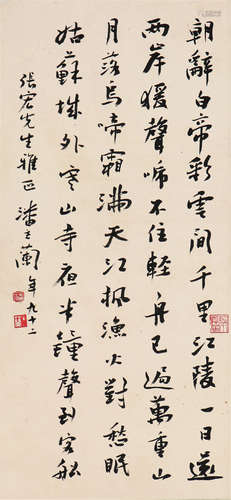 朝辭白帝彩雲間千里江陵一日還
兩岸猨聲啼不住輕舟已過萬重山
月落烏啼霜滿天江楓漁火對愁眠
姑蘇城外寒山寺夜半鐘聲到客船
張宏先生雅正 潘主蘭年九十二